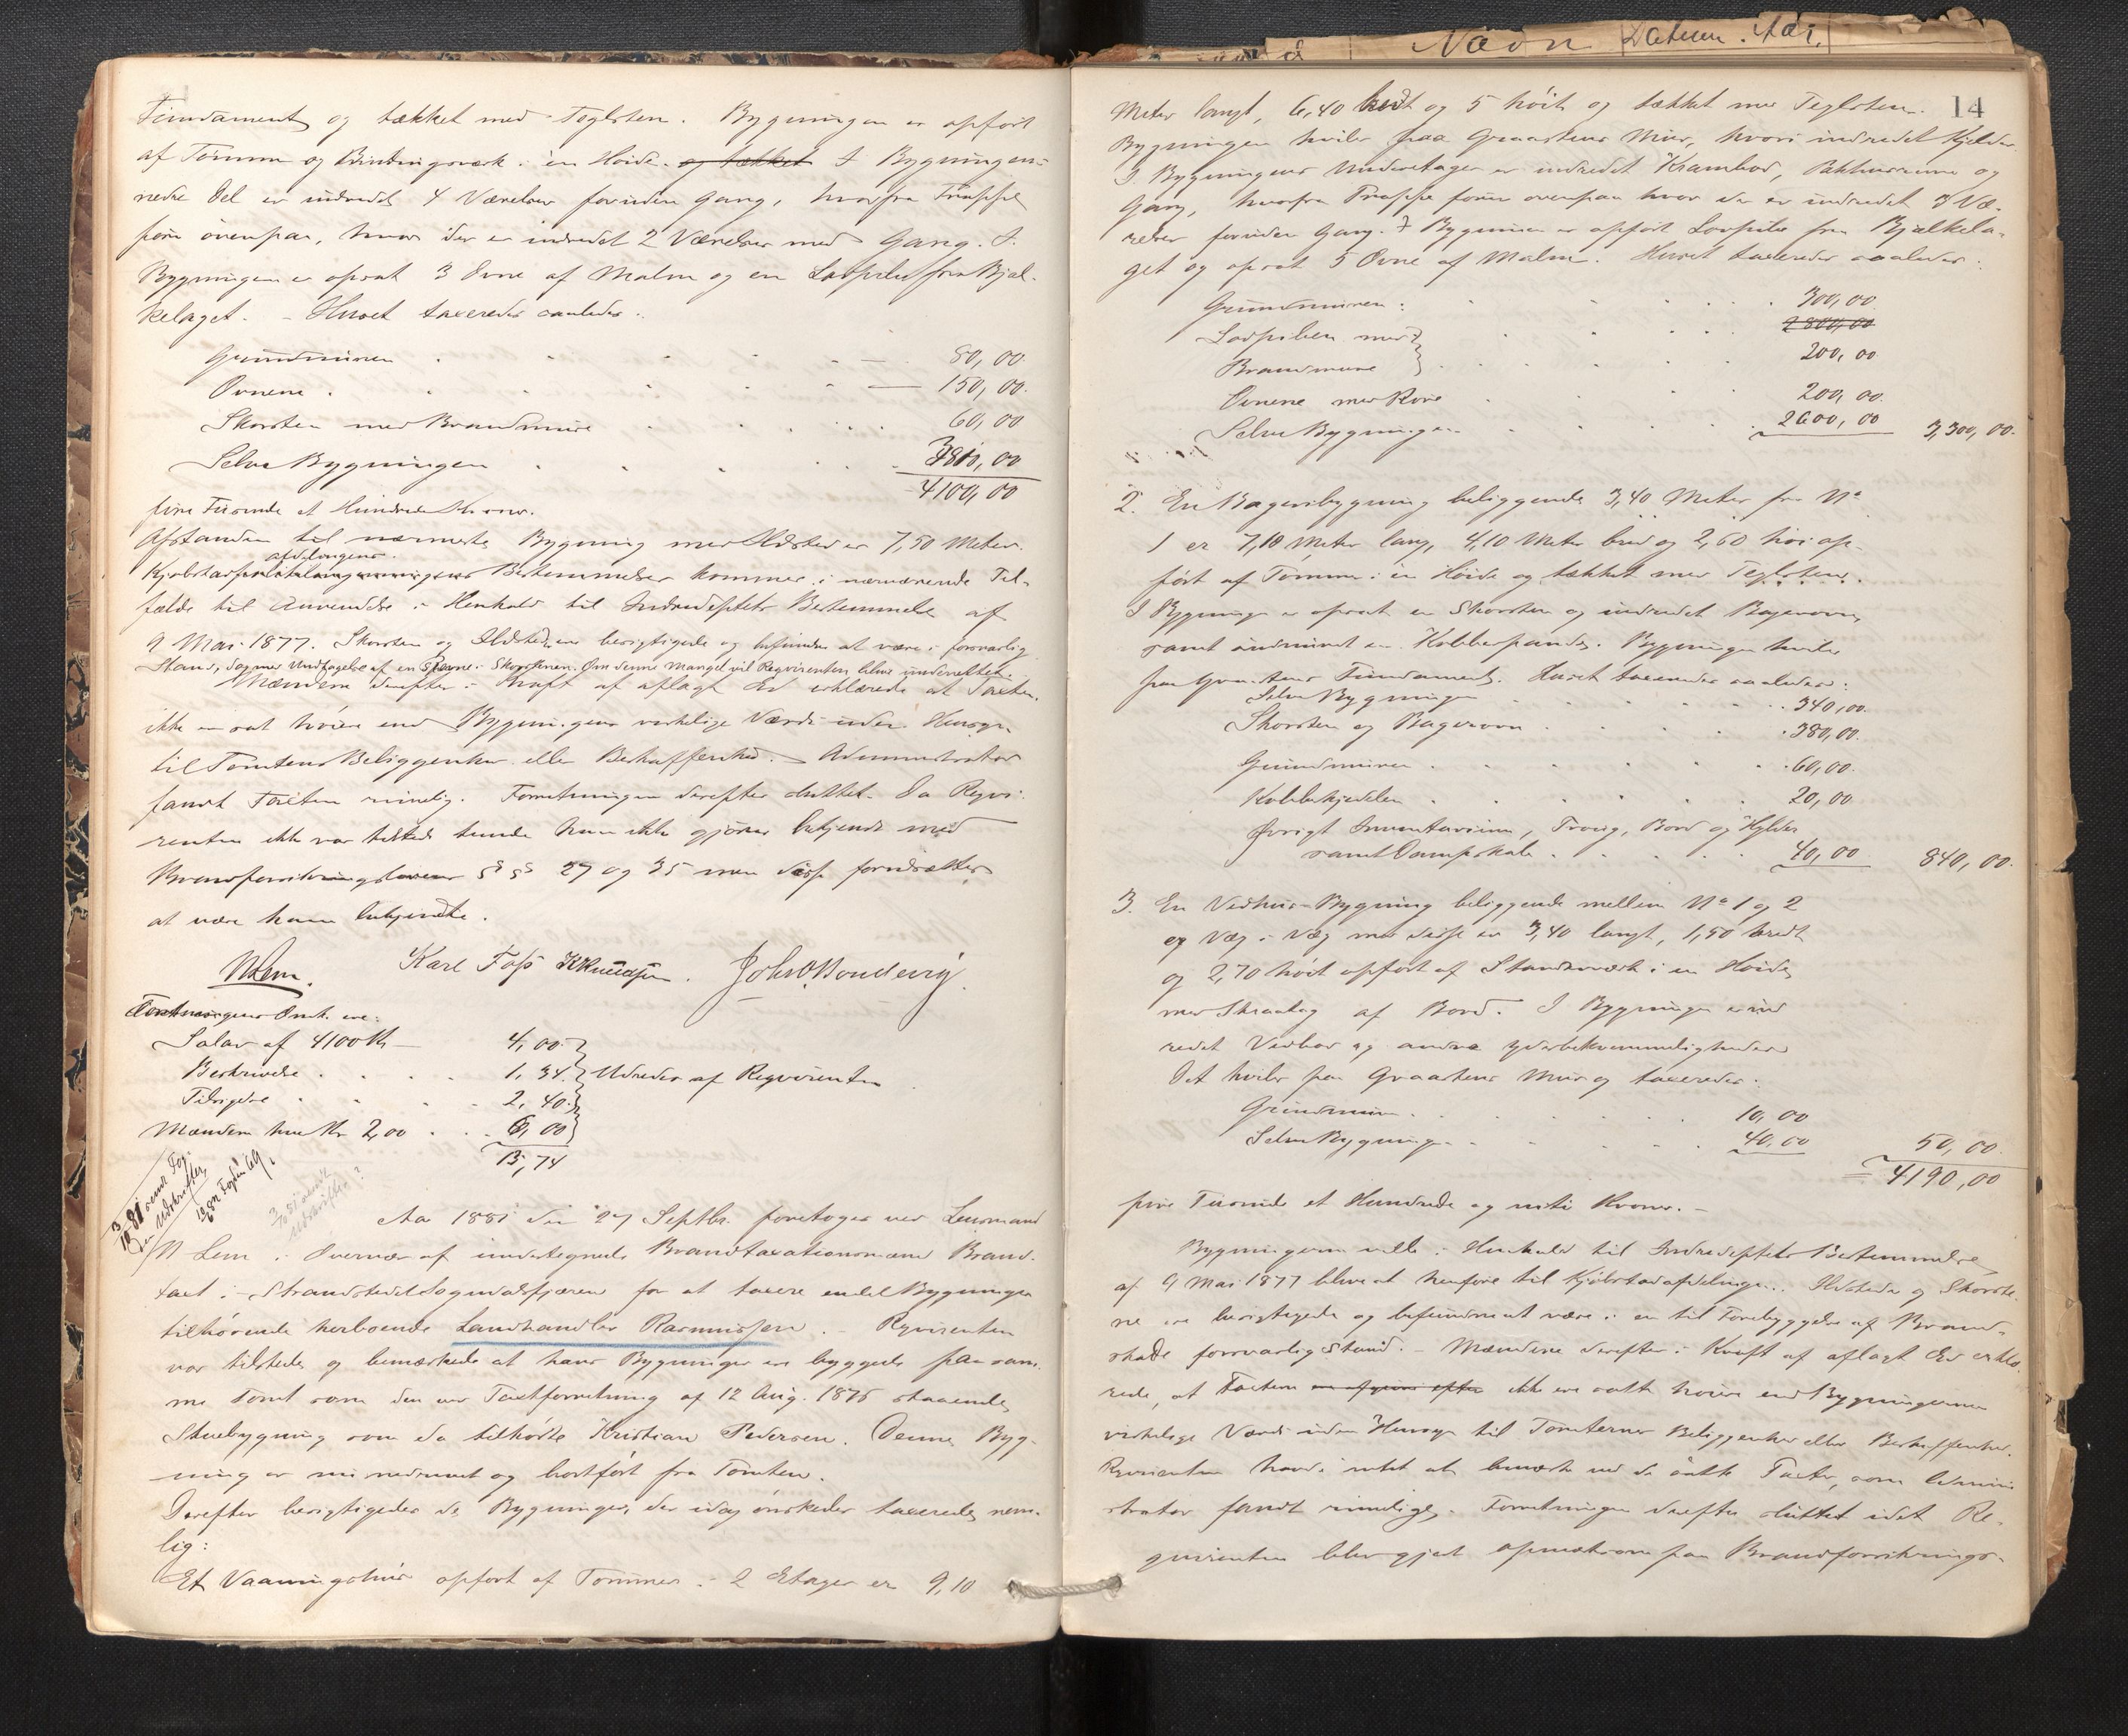 Fundament og tækket med Teglsten. Bygningen er opført
af Tømmer og Bindingsværk i en Høide. og tækket I Bygningens
nedre Del er indredet 4 Værelser foruden Gang, hvorfra Trappe
fører ovenpaa, hvor der er indredet 2 Værelser med Gang. I
Bygningen er opsat 3 Ovne af Malm og en Lodpibe fra Bjæl-
kelaget. - Huset taxeredes saaledes:
Grundmuren 80,00.
Ovnene 150,00.
Skorsten med Brandmure 60,00
Selve Bygningen 3810,00
4100,00
fire Tusinde et Hundrede Kroner.
Afstanden til nærmeste Bygning med Ildsted er 7,50 Meter.
afdelingens
Kjøbstad Bestemmelser kommer i nærværende Til-
fælde til Anvendelse i Henhold til Indredeptets Bestemmelse af
9 Mai 1877. Skorsten og Ildsteder er besigtigede og befundne at være i forsvarlig
Stand, dog med Undtagelse af en i Skorstenen. Om denne Mangel vil Reqvirenten blive underrettet.
Mændene derefter i Kraft af aflagt Ed erklærede at Taxten
ikke er sat høiere end Bygningens virkelige Værdi uden Hensyn
til Tomtens Beliggenhed eller Beskaffenhed. - Administrator
fandt Taxten rimelig. Forretningen derefter sluttet. Da Reqvi-
renten ikke var tilstede kunde han ikke gjøres bekjendt med
Brandforsikringslovens §§ 27 og 35 men disse forudsættes
at være ham bekjendte.
NLem. Karl Foss KKnudsen. John O. Bondevig.
Forretningens Omk. ere:
Salær af 4100 Kr 4,00.
Beskrivelse 1,34. Udredes af Reqvirenten
Tilsigelse 2,40.
Mændene hver Kr 2,00 6,00
13,74
3/10 81 sendt Fog-
den Udskrifter,
3/10 81 sendt
Udskrifter?
Aar 1881 den 27 Septbr. foretoges ved Lensmand
N Lem i Overvær af undertegnede Brandtaxationsmænd Brand-
taxt i Strandstedet Sogndalsfjæren for at taxere endel Bygninger
tilhørende herboende Landhandler Rasmussen. - Reqvirenten
var tilstede og bemærkede at hans Bygninger ere byggede paa sam-
me Tomt som den ved Taxtforretning af 12 Aug. 1875 staaende
Stuebygning som da tilhørte Kristian Pedersen. Denne Byg-
ning er nu nedrevet og bortført fra Tomten.
Derefter besigtigedes de Bygninger, der idag ønskedes taxerede, nem-
lig:
Et Vaaningshus opført af Tømmer i 2 Etager er 9,10
14
Nævn Datum. Aar.
Meter langt, 6,40 bredt og 5 høit og tækket med Teglsten.
Bygningen hviler paa Graastens Mur, hvori indredet Kjelder
I Bygningens Underetage er indredet Krambod, Pakhusrum og
Gang, hvorfra Trappe fører ovenpaa hvor der er indredet 3 Væ-
relser foruden Gang. I Bygningen er opført Lodpibe fra Bjælkela-
get og opsat 5 Ovne af Malm. Huset taxeredes saaledes:
Grundmuren: 300,00
2800,00
Lodpiben med
Brandmure 200,00
Ovnene med Rør 200,00.
Selve Bygningen 2600,00 3,300,00.
2. En Bageribygning beliggende 3,40 Meter fra No
1 er 7,10 Meter lang, 4,10 Meter bred og 2,60 høi op-
ført af Tømmer i en Høide og tækket med Teglsten.
I Bygningen er opsat en Skorsten og indredet Bagerovn,
samt indmuret en Kobberpande. Bygningen hviler
paa Graastens Fundament. Huset taxeredes saaledes:
Selve Bygningen 340,00.
Skorsten og Bagerovn 380,00.
Grundmuren 60,00.
Kobberkjedelen 20,00
Øvrigt Inventarium, Troug, Bord og Hylder
samt Dampskab 40,00 840,00.
3. En Vedhus-Bygning beliggende mellem No 1 og 2
og Væg i Væg med disse er 3,40 langt, 1,50 bredt
og 2,70 høit opført af Standværk i en Høide
med Skraatag af Bord. I Bygningen er ind
redet Vedbod og andre
Det hviler paa Graastens Mur og taxeredes:
Grundmuren 10,00
Selve Bygningen 40,00 50,00.
4190,00
fire Tusinde et Hundrede og niti Kroner. -
Bygningerne ville i Henhold til Indredeptets Bestemmelse
af 9 Mai 1877 blive at henføre til Kjøbstadafdelingen. Ildsteder og Skorste-
ne ere besigtigede og befundne at være i en til Forebyggelse af Brand-
skade forsvarlig Stand. - Mændene derefter i Kraft af aflagt Ed erklæ-
rede, at Taxterne ikke ere satte høiere end Bygningernes
virkelige Værdi uden Hensyn til Tomternes Beliggenhed eller Beskaffenhed.
Reqvirenten havde intet at bemærke ved de satte Taxter, som Admini-
strator fandt rimelige. Forretningen derefter sluttet idet Re-
quirenten blev gjort opmærksom paa Brandforsikrings-